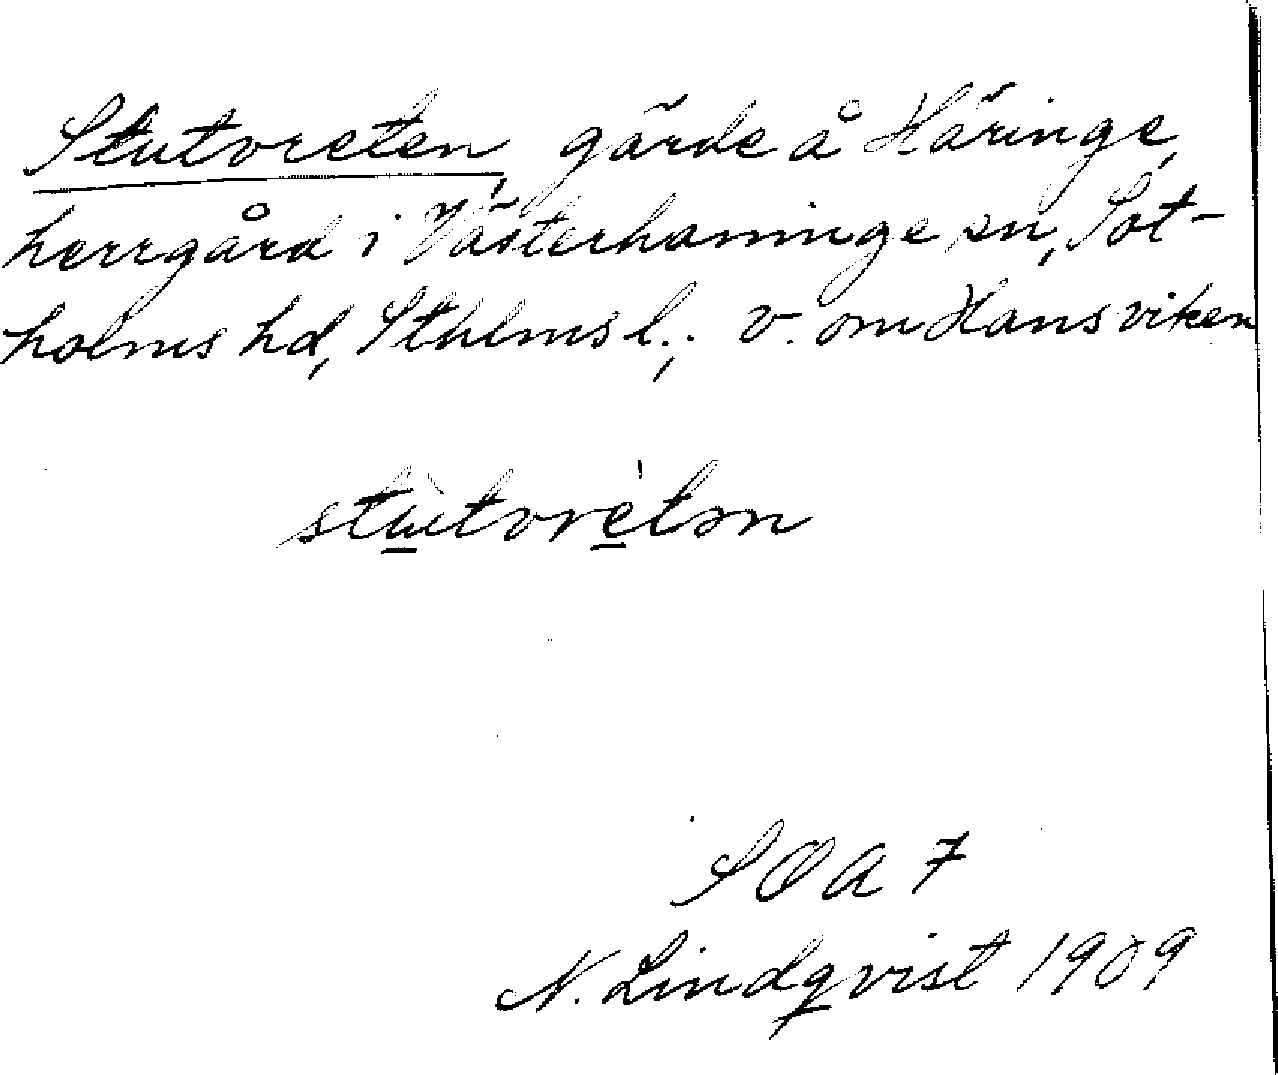 Stutvreten, gärde å Häringe,
herrgård i Västerhaninge sn, Sot-
holms hd, Sthlms l.; v. om Hansviken
stu̠tvre̠tən
SOA 7
N. Lindqvist 1909